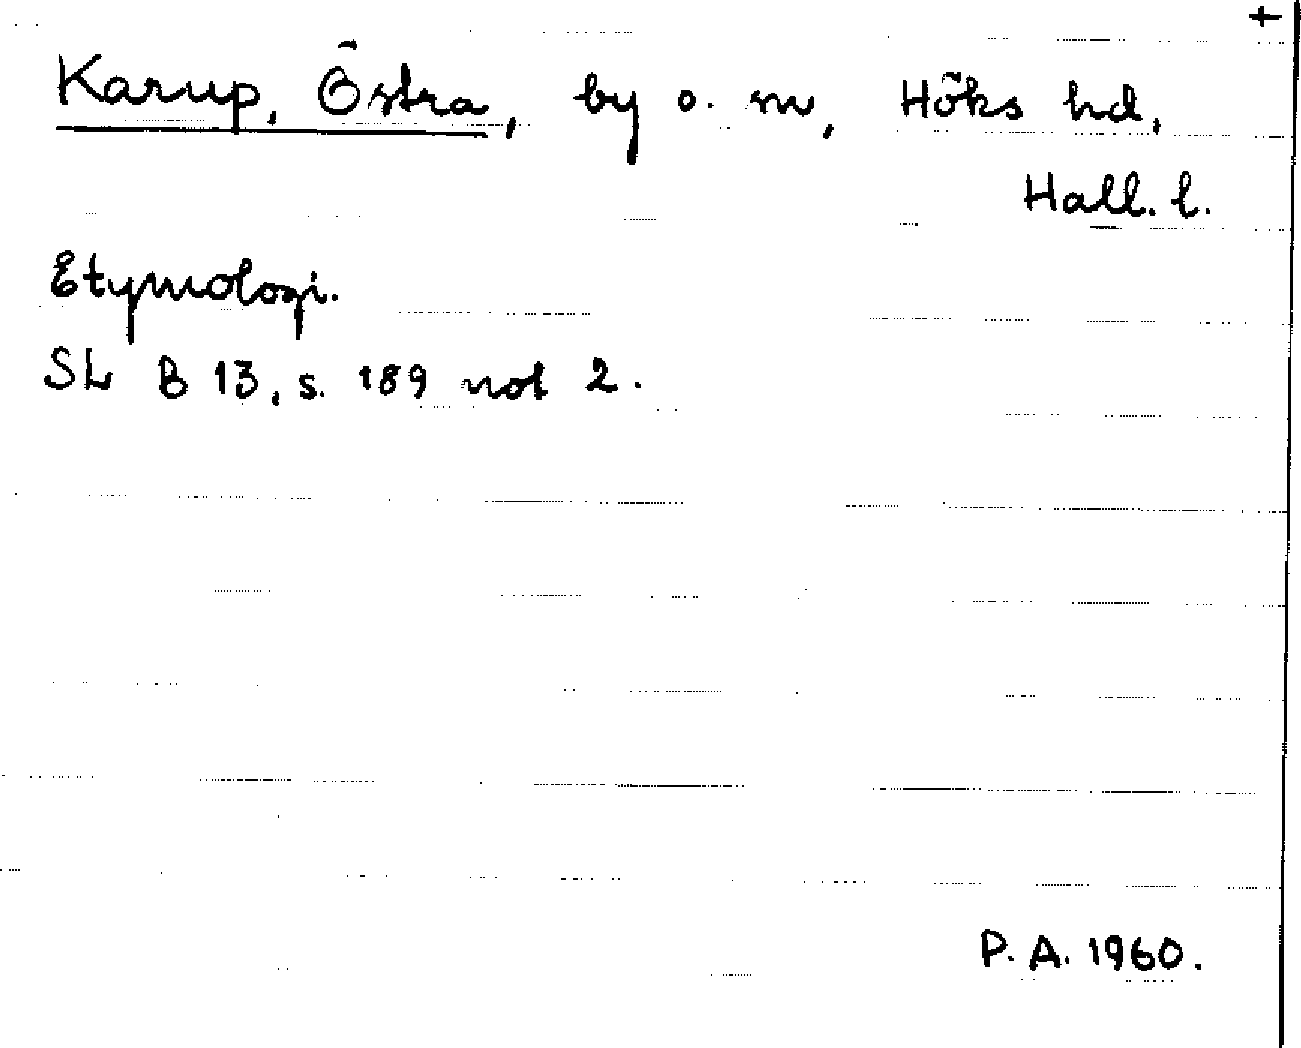 +
Karup, Östra, by o. sn, Höks hd,
Hall. l.
Etymologi.
SL B 13, s. 189 not 2.
P. A. 1960.